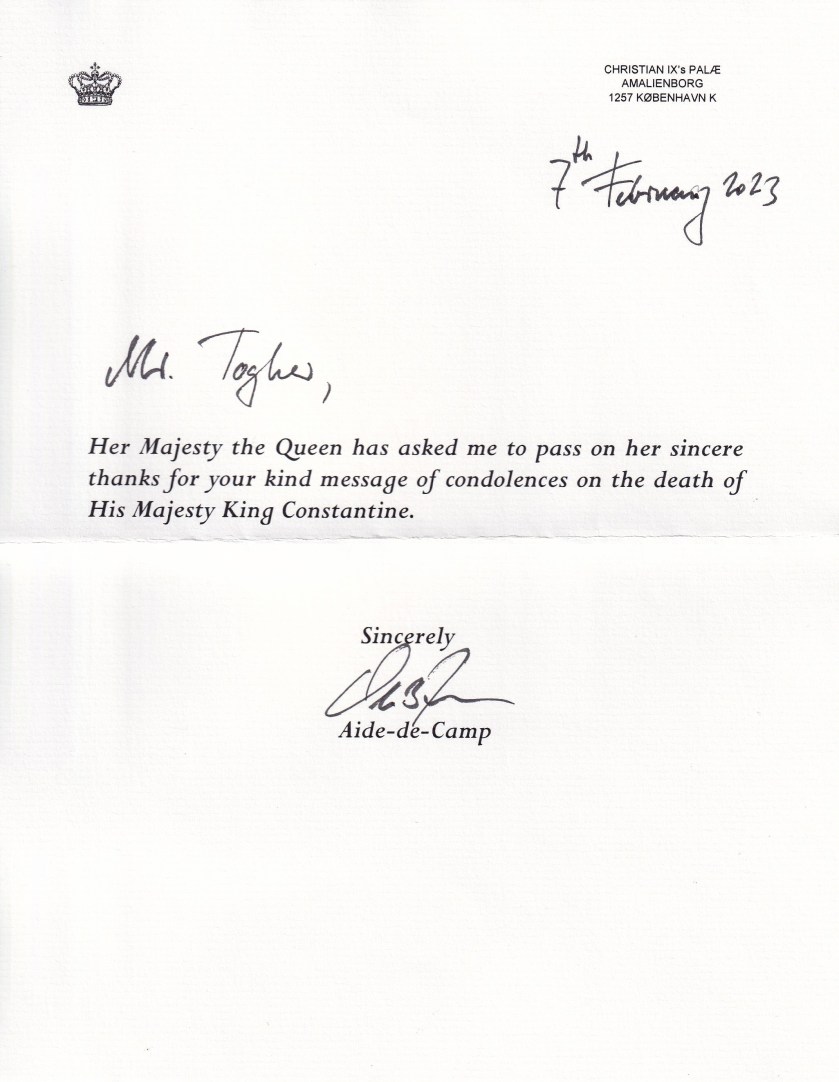 CHRISTIAN IX's PALÆ
AMALIENBORG
1257 KØBENHAVN K
7th February 2023
Mr. Togher,
Her Majesty the Queen has asked me to pass on her sincere
thanks for your kind message of condolences on the death of
His Majesty King Constantine.
Sincerely
Aide-de-Camp